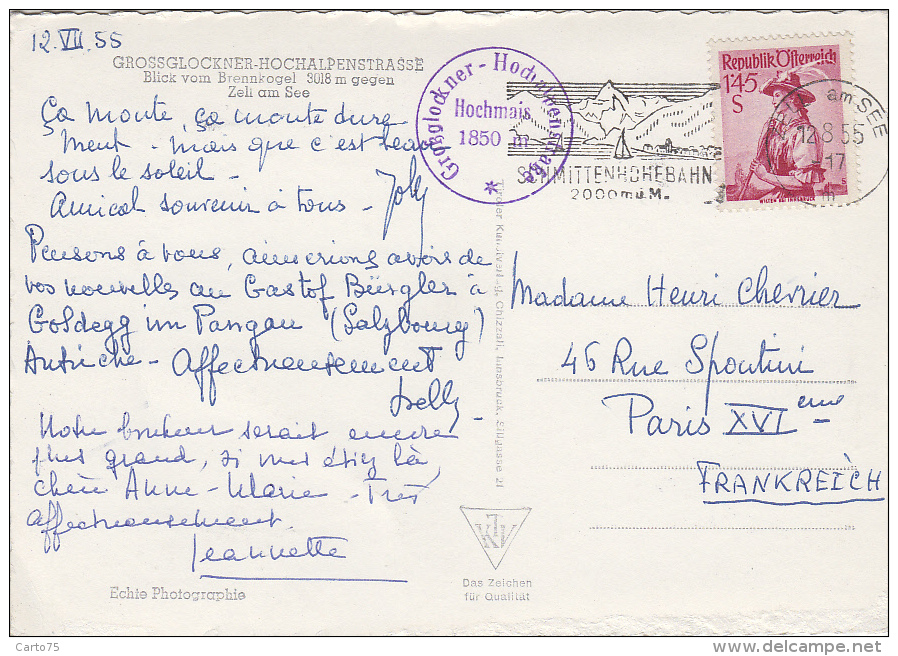 12.VII.55
GROSSGLOCKNER-HOCHALPENSTRASSE
Blick vom Brennkogel 3018 m gegen
Zell am See
Ça monte, ça monte dure
ment - mais que c'est beau
sous le soleil -
Amical souvenir à tous - Joly
Pensons à vous, aimerions avoir de
vos nouvelles au Gastof Bürgler à
Goldegg im Pangau (Salzbourg)
Autriche - Affectueusement
Notre bonheur serait encore
plus grand, si vous étiez là,
chère Anne-Marie - Très
affectueusement.
Jeannette
Echte Photographie
Grossglockner-Hochalpenstraße
Hochmais
1850 m
SCHMITTENHÖHEBAHN
2000 m ü.M.
Republik Österreich
1'45
S
am SEE
12.8.55
-17
Tiroler Kunstverlag Chizzali, Innsbruck, Sillgasse 21
Madame Henri Chevrier
46 Rue Spontini
Paris XVI eme -
FRANKREICH
Das Zeichen
für Qualität
Carto75